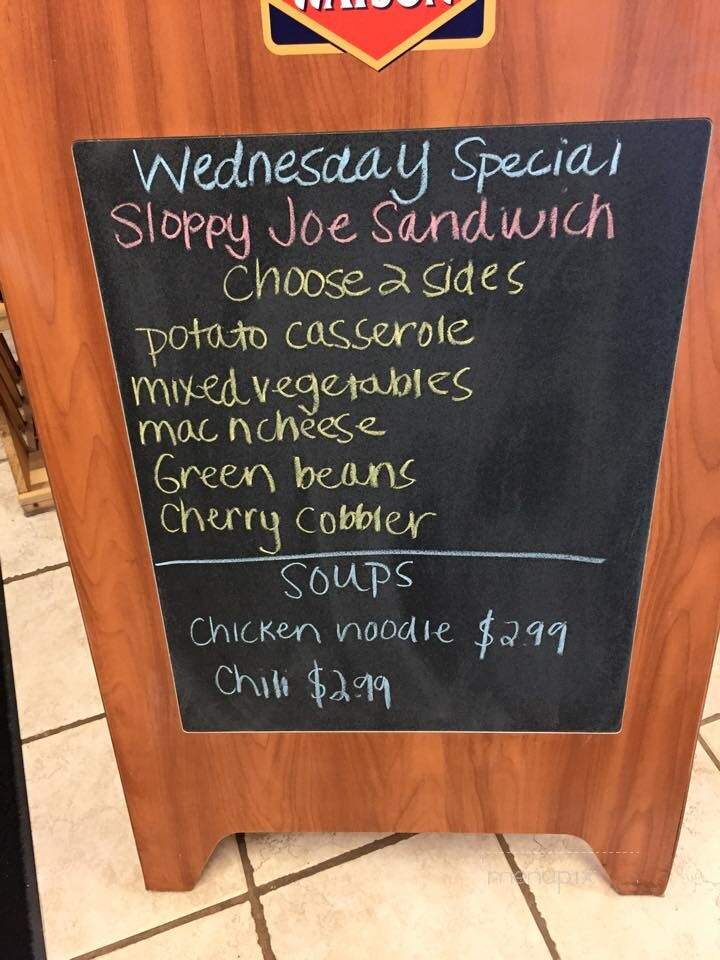 Wednesday Special
Sloppy Joe Sandwich
Choose 2 sides
potato casserole
mixed vegetables
mac n cheese
Green beans
Cherry Cobbler
SOUPS
Chicken noodle $2.99
Chili $2.99
menupix